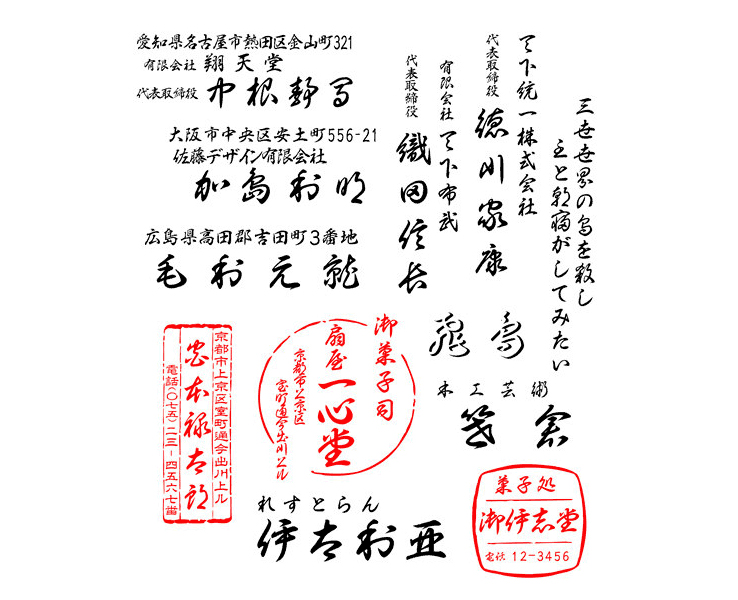 愛知県名古屋市熱田区金山町321
有限会社 翔天堂
代表取締役 中根静男
大阪市中央区安土町556-21
佐藤デザイン有限会社
加島利明
広島県高田郡吉田町3番地
毛利元就
三世世界の烏を殺し
主と朝寝がしてみたい
天下統一株式会社
代表取締役 徳川家康
有限会社 天下布武
代表取締役 織田信長
飛鳥
木工芸術
京都市上京区室町通今出川上ル
岩本禄太郎
電話(〇七五)二三-四五六七番
御菓子司
扇屋 一心堂
京都市上京区
室町通今出川上ル
れすとらん
伊太利亜
菓子処
御伊志堂
電話 12-3456